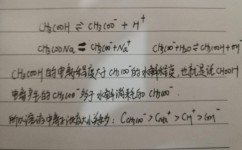 CH₃COOH ⇌ CH₃COO⁻ + H⁺
CH₃COONa = CH₃COO⁻+Na⁺ CH₃COO⁻+H₂O⇌CH₃COOH+OH⁻
CH₃COOH的电离程度大于CH₃COO⁻的水解程度,也就是说CH₃COOH
电离产生的CH₃COO⁻多于水解消耗的CH₃COO⁻
所以溶液中离子浓度大小为: C_CH₃COO⁻ > C_Na⁺ > C_H⁺ > C_OH⁻